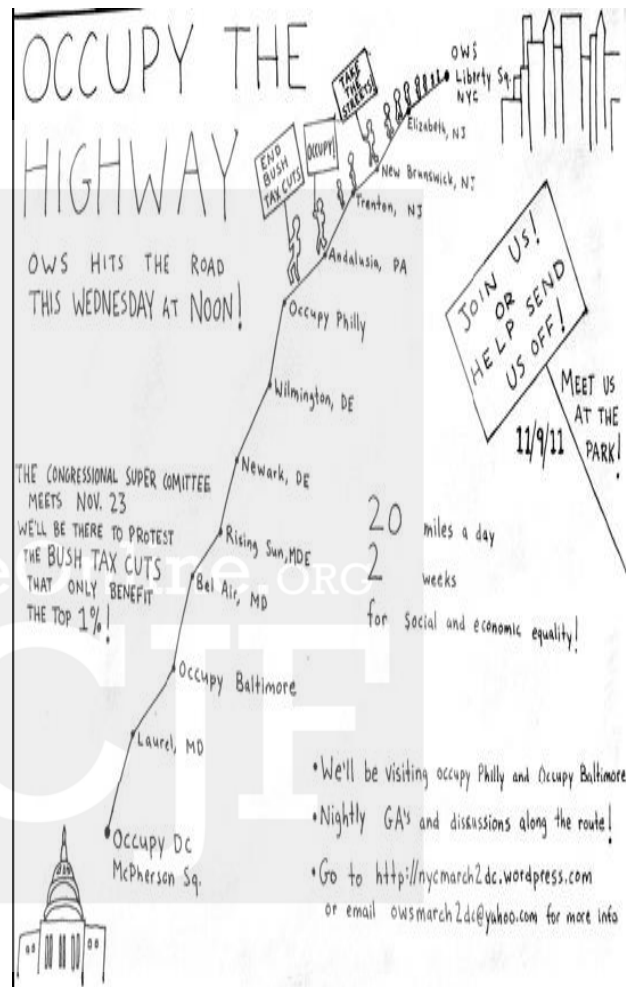 OCCUPY THE
HIGHWAY
OWS HITS THE ROAD
THIS WEDNESDAY AT NOON!
END
BUSH
TAX CUTS
OCCUPY!
TAKE
THE
STREETS!
OWS
Liberty Sq.
NYC
Elizabeth, NJ
New Brunswick, NJ
Trenton, NJ
Andalusia, PA
Occupy Philly
Wilmington, DE
Newark, DE
Rising Sun, MDE
Bel Air, MD
Occupy Baltimore
Laurel, MD
Occupy DC
McPherson Sq.
JOIN US!
OR
HELP SEND
US OFF!
MEET US
AT THE
PARK!
11/9/11
THE CONGRESSIONAL SUPER COMITTEE
MEETS NOV. 23
WE'LL BE THERE TO PROTEST
THE BUSH TAX CUTS
THAT ONLY BENEFIT
THE TOP 1%!
20 miles a day
2 weeks
for social and economic equality!
• We'll be visiting occupy Philly and Occupy Baltimore
• Nightly GA's and discussions along the route!
• Go to http://nycmarch2dc.wordpress.com
or email owsmarch2dc@yahoo.com for more info
eOnline.ORG
CJF